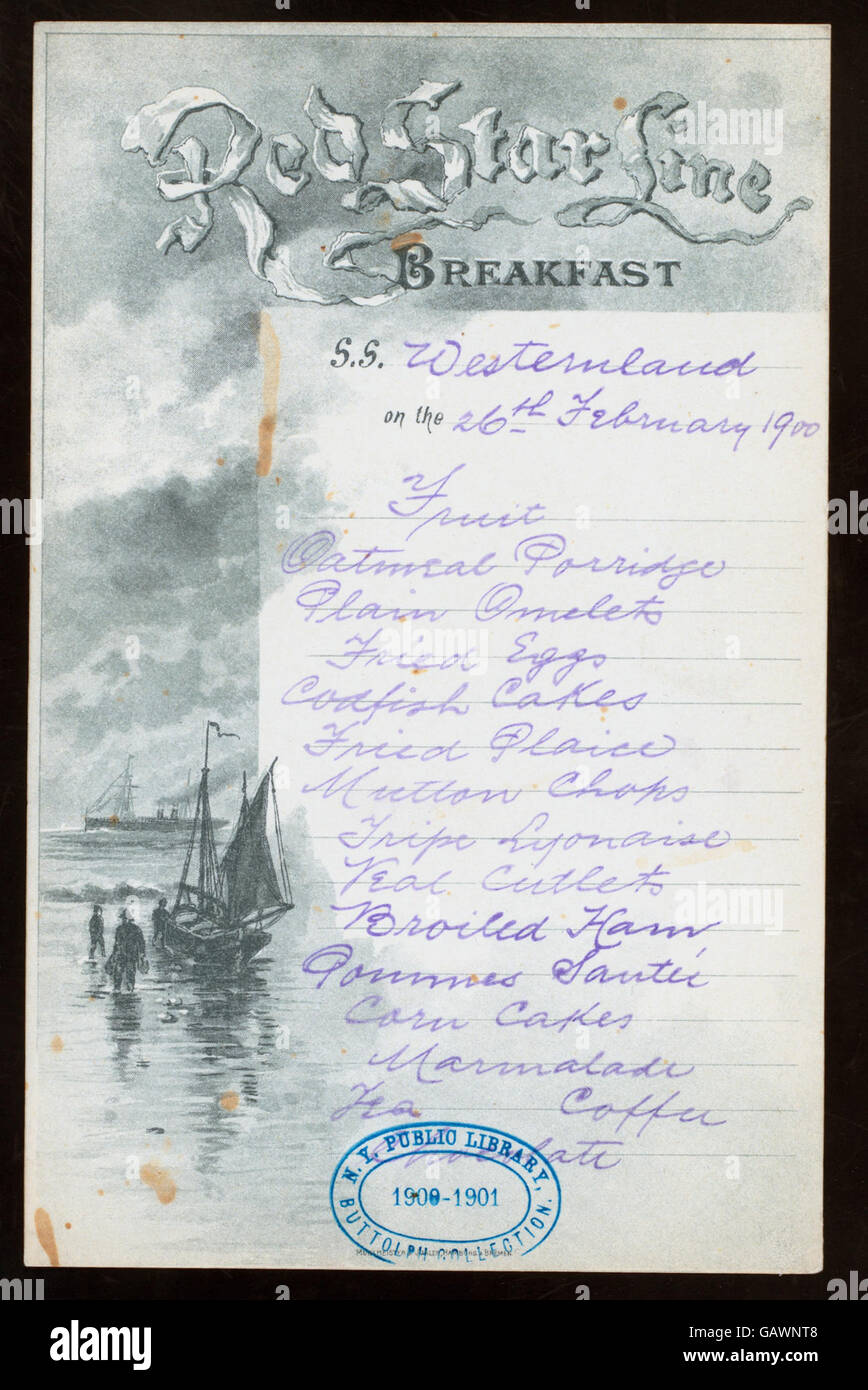 Red Star Line
BREAKFAST
S.S. Westernland
on the 26th February 1900
Fruit
Oatmeal Porridge
Plain Omelets
Fried Eggs
Codfish Cakes
Fried Plaice
Mutton Chops
Tripe Lyonaise
Veal Cutlets
Broiled Ham
Pommes Sauteé
Corn Cakes
Marmalade
Tea Coffee
Chocolate
N.Y. PUBLIC LIBRARY,
1900-1901
BUTTOLPH COLLECTION.
alamy
Image ID: GAWNT8
www.alamy.com